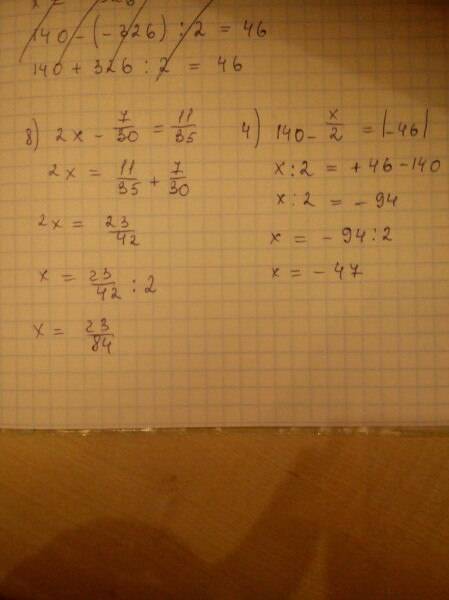 140 - (-326) : 2 = 46
140 + 326 : 2 = 46
8) 2x - 7/30 = 11/35
2x = 11/35 + 7/30
2x = 23/42
x = 23/42 : 2
x = 23/84
4) 140 - x/2 = |-46|
x : 2 = +46 - 140
x : 2 = - 94
x = - 94 : 2
x = - 47